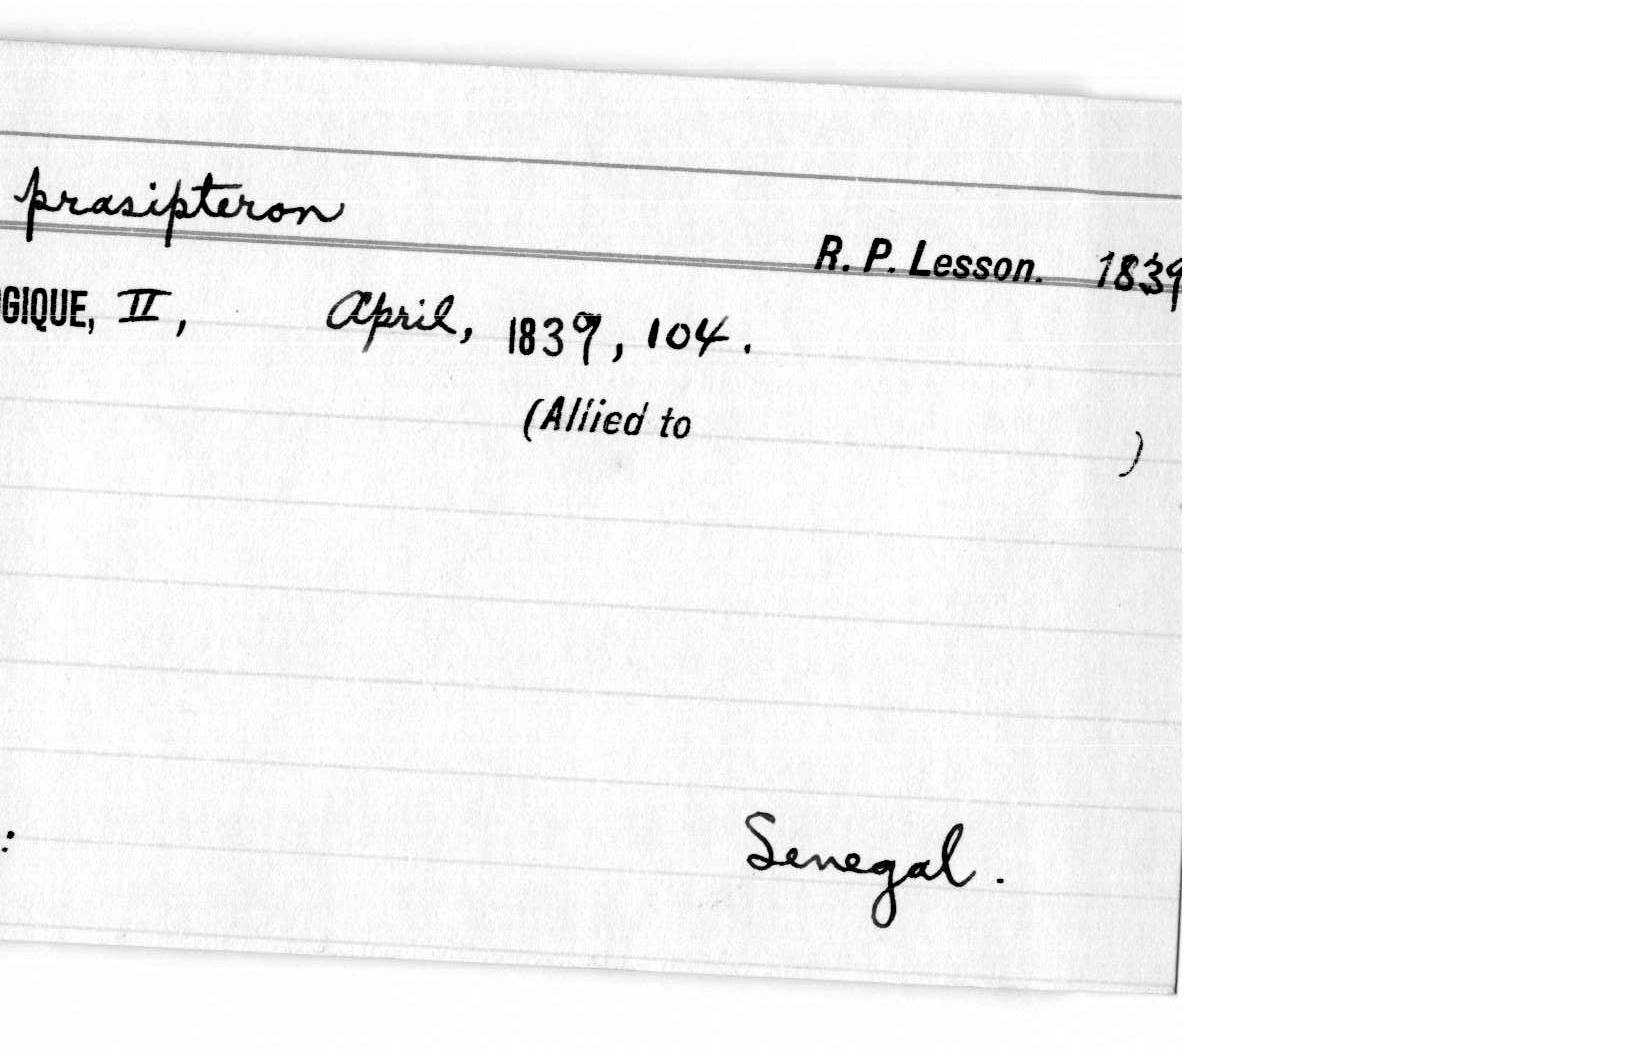 prasipteron
R. P. Lesson. 1839
GIQUE, II, April, 1839, 104.
(Allied to )
: Senegal.